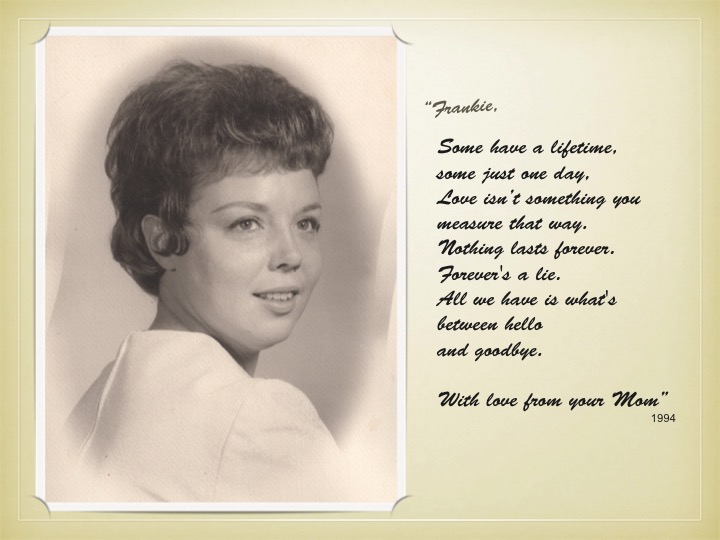 “Frankie,
Some have a lifetime,
some just one day,
Love isn’t something you
measure that way.
Nothing lasts forever.
Forever's a lie.
All we have is what's
between hello
and goodbye.
With love from your Mom”
1994